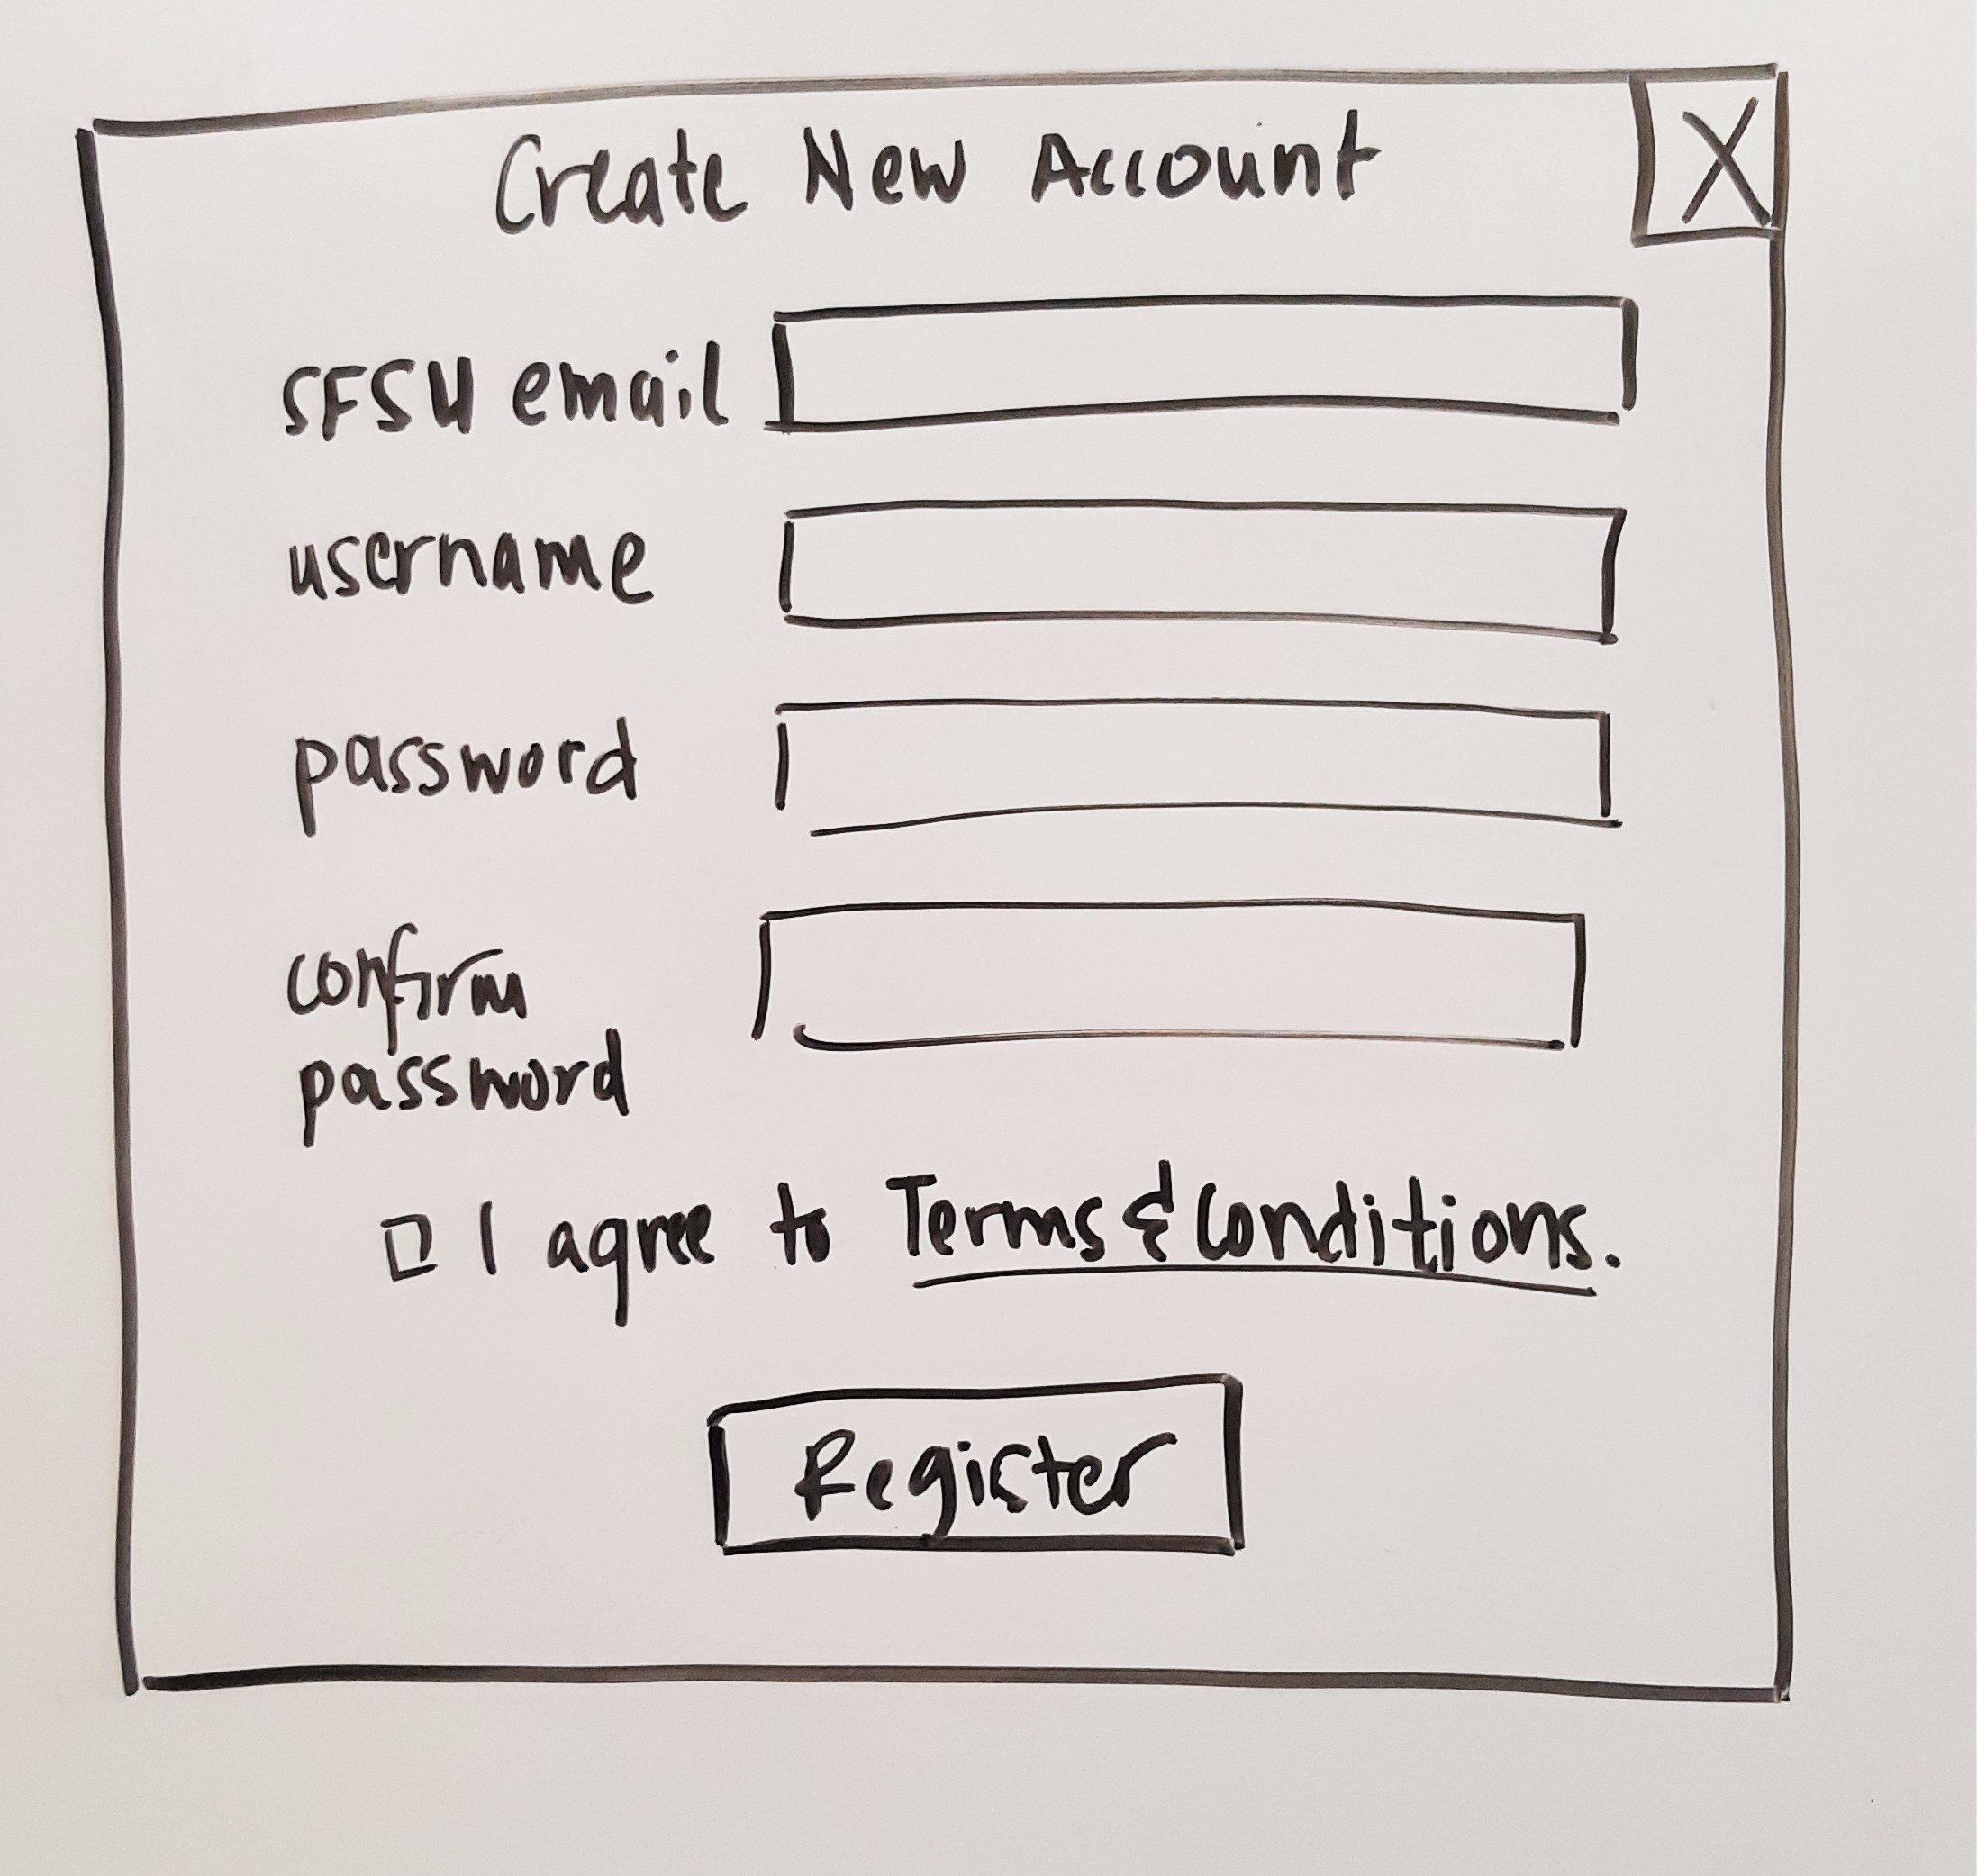 Create New Account
X
SFSU email
username
password
confirm
password
I agree to Terms & Conditions.
Register